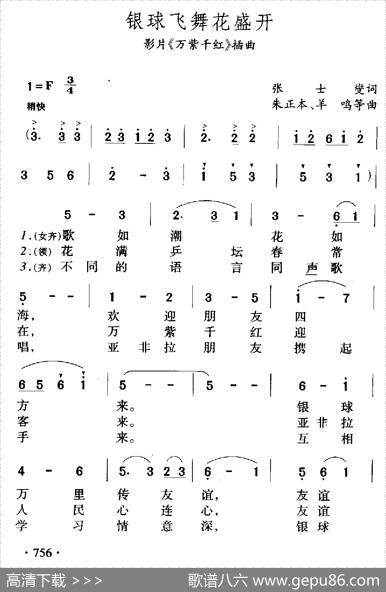 银球飞舞花盛开
影片《万紫千红》插曲
1=F 3/4
张士燮词
稍快
朱正本、羊鸣等曲
(3. 3 3 | 3. 3 3 | 3. 1 2 3 | 1 2 6 1 2 |
3 5 6 | 2 - 3 | 1 5 3 | 1 5 3 1) |
5 - 3 | 2. 3 1 | 3 - 6 1 |
1.(女齐)歌如潮花如
2.(领)花满乒坛春常
3.(齐)不同的语言同声歌
5 - - | 1 - 2 | 3 - 5 | 1 - 7 |
海,欢迎朋友四
在,万紫千红迎
唱,亚非拉朋友携起
6 5 6 1 | 2 - - | 2 - - | 6 - 1 |
方来。银球
客来。亚非拉
手来。互相
4 - 6 | 5. 3 2 3 | 6 - 1 | 5 - 1 |
万里传友谊,友谊
人民心连心,友谊
学习情意深,银球
· 756 ·
高清下载 >>>
歌谱八六 www.gepu86.com